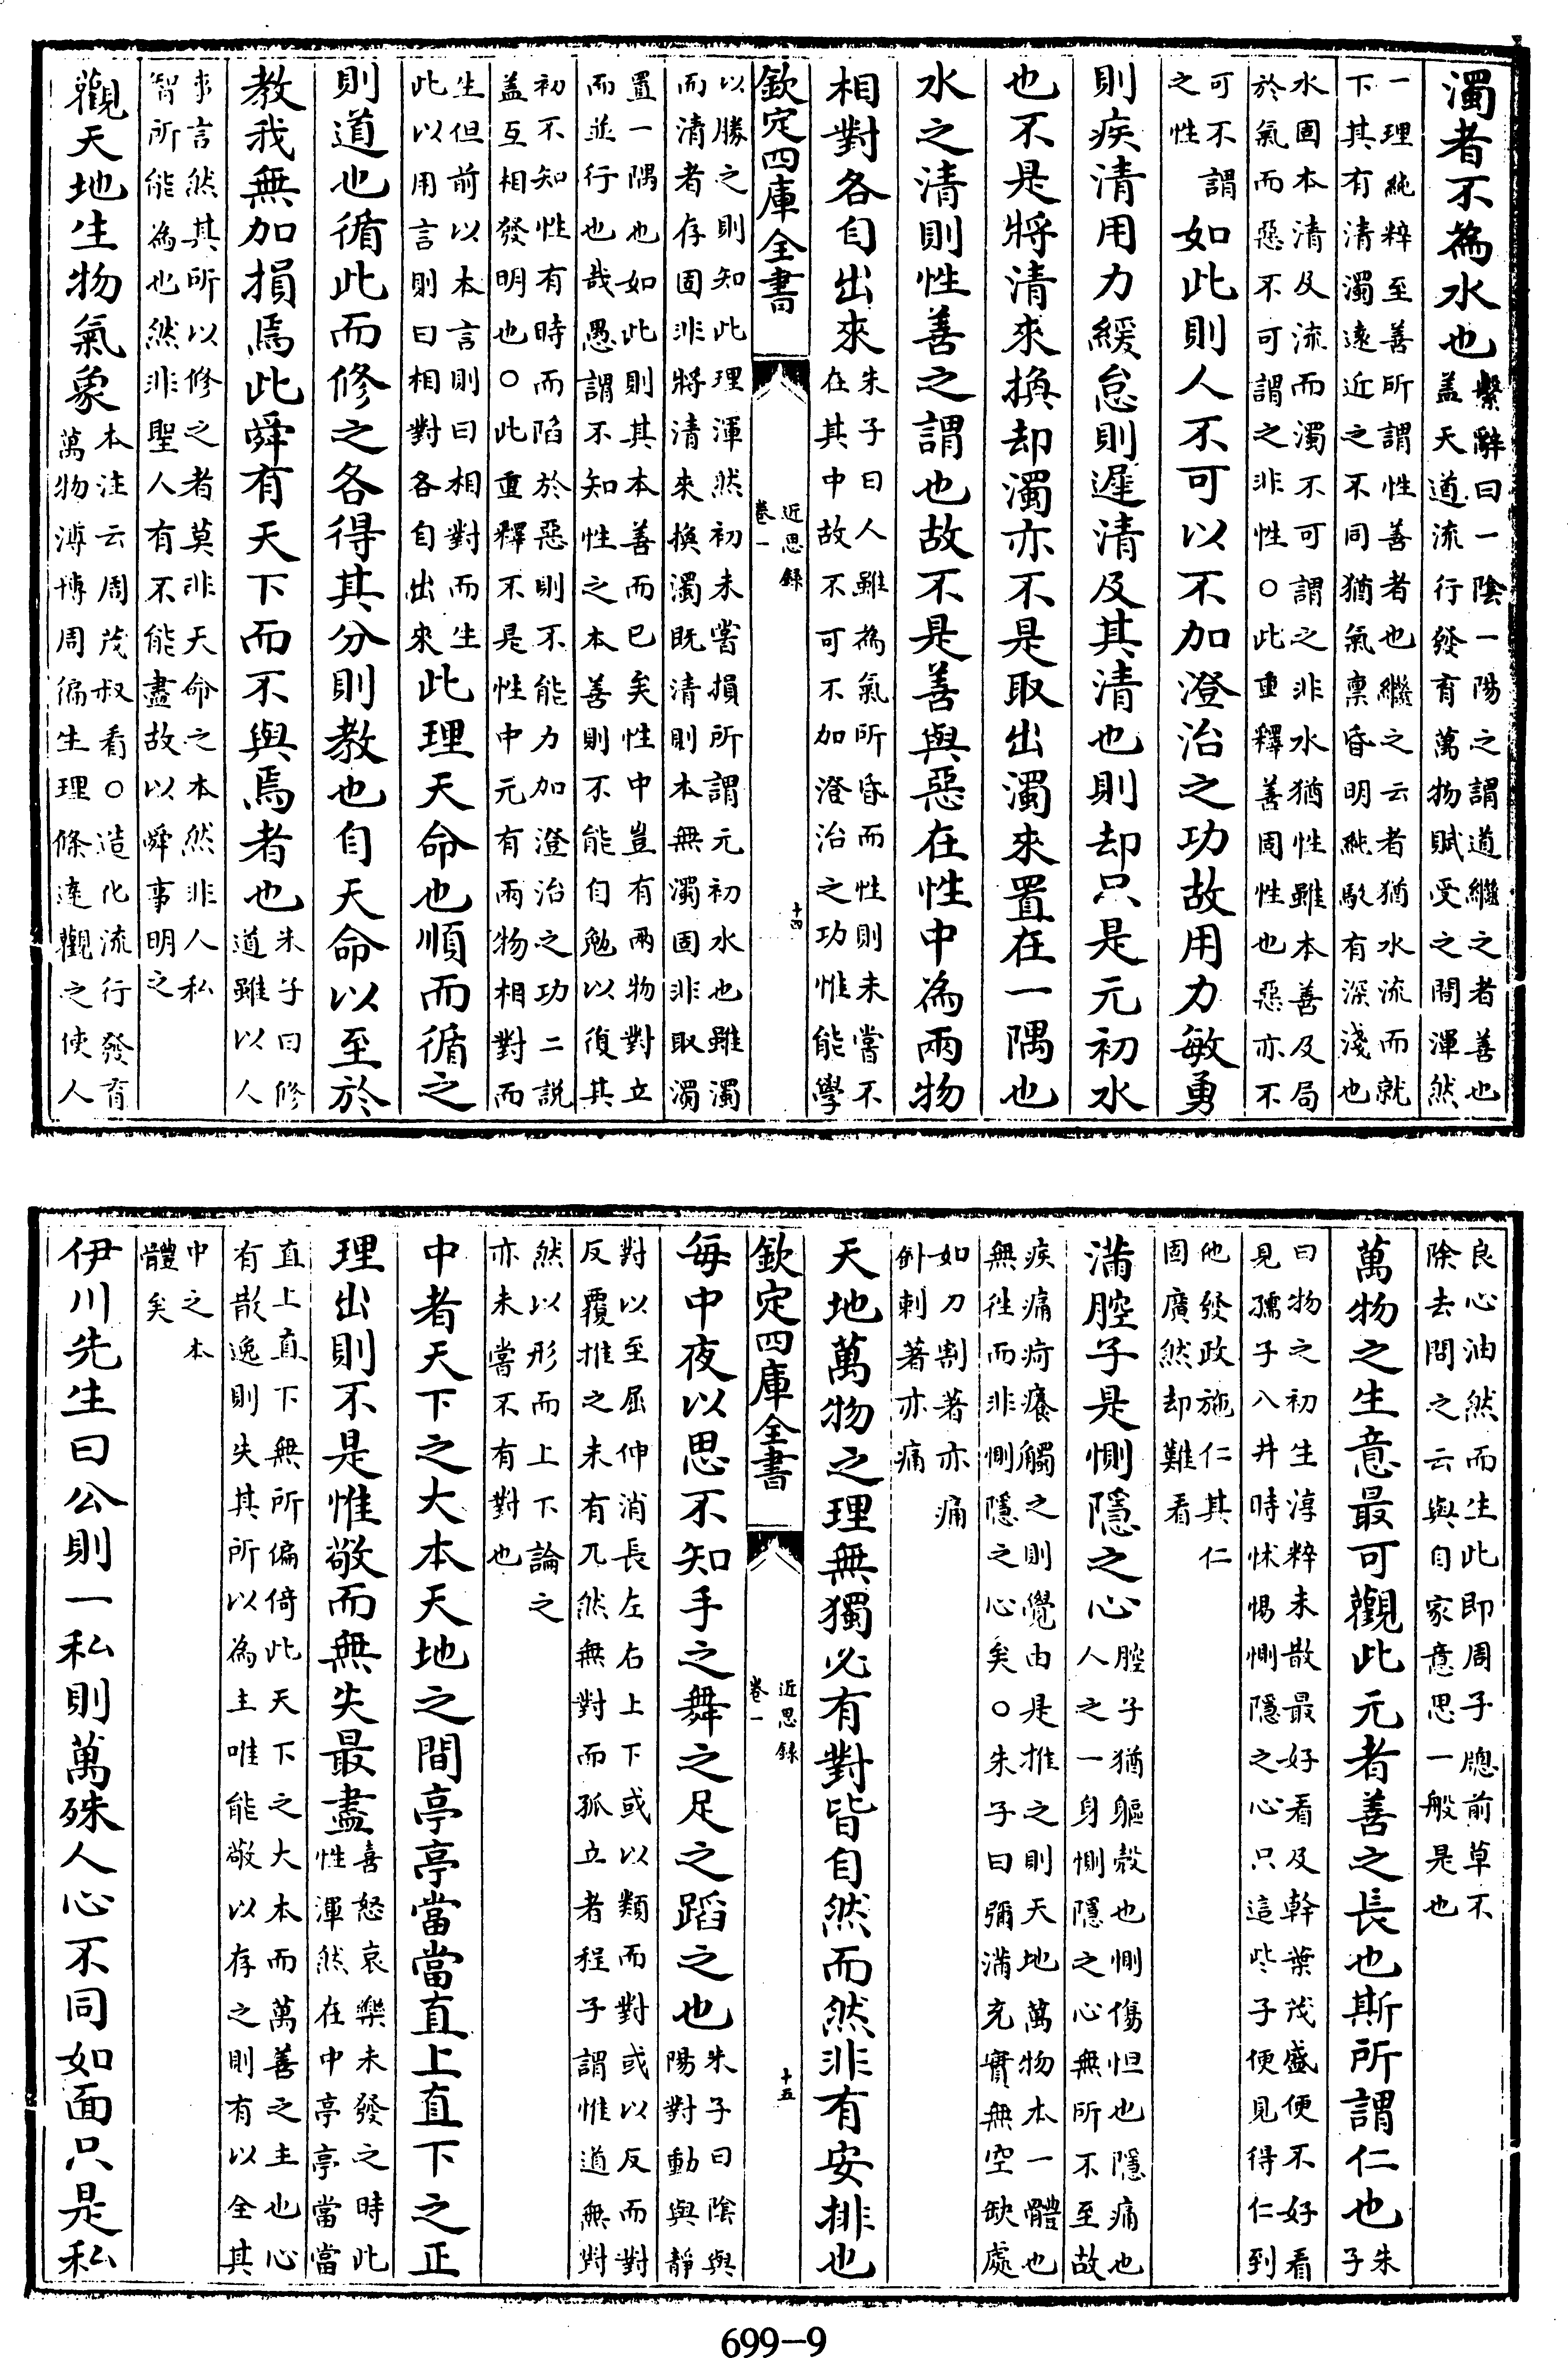 濁者不為水也繫辭曰一陰一陽之謂道繼之者善也
蓋天道流行發育萬物賦受之間渾然
一理純粹至善所謂性善者也繼之云者猶水流而就
下其有清濁遠近之不同猶氣稟昏明純駁有深淺也
水固本清及流而濁不可謂之非水猶性雖本善及局
於氣而惡不可謂之非性○此重釋善固性也惡亦不
可不謂
之性如此則人不可以不加澄治之功故用力敏勇
則疾清用力緩怠則遲清及其清也則却只是元初水
也不是將清來換却濁亦不是取出濁來置在一隅也
水之清則性善之謂也故不是善與惡在性中為兩物
相對各自出來朱子曰人雖為氣所昏而性則未嘗不
在其中故不可不加澄治之功惟能學
欽定四庫全書
近思錄
卷一
十四
以勝之則知此理渾然初未嘗損所謂元初水也雖濁
而清者存固非將清來換濁既清則本無濁固非取濁
置一隅也如此則其本善而已矣性中豈有兩物對立
而並行也哉愚謂不知性之本善則不能自勉以復其
初不知性有時而陷於惡則不能力加澄治之功二説
蓋互相發明也○此重釋不是性中元有兩物相對而
生但前以本言則曰相對而生
此以用言則曰相對各自出來此理天命也順而循之
則道也循此而修之各得其分則教也自天命以至於
教我無加損焉此舜有天下而不與焉者也朱子曰修
道雖以人
事言然其所以修之者莫非天命之本然非人私
智所能為也然非聖人有不能盡故以舜事明之
觀天地生物氣象本注云周茂叔看○造化流行發育
萬物溥博周徧生理條達觀之使人
良心油然而生此即周子牕前草不
除去問之云與自家意思一般是也
萬物之生意最可觀此元者善之長也斯所謂仁也朱
子
曰物之初生淳粹未散最好看及幹葉茂盛便不好看
見孺子入井時怵惕惻隱之心只這些子便見得仁到
他發政施仁其仁
固廣然却難看
滿腔子是惻隱之心腔子猶軀殼也惻傷怛也隱痛也
人之一身惻隱之心無所不至故
疾痛疴癢觸之則覺由是推之則天地萬物本一體也
無往而非惻隱之心矣○朱子曰彌滿充實無空缺處
如刀割著亦痛
針刺著亦痛
天地萬物之理無獨必有對皆自然而然非有安排也
欽定四庫全書
近思錄
卷一
十五
每中夜以思不知手之舞之足之蹈之也朱子曰陰與
陽對動與靜
對以至屈伸消長左右上下或以類而對或以反而對
反覆推之未有兀然無對而孤立者程子謂惟道無對
然以形而上下論之
亦未嘗不有對也
中者天下之大本天地之間亭亭當當直上直下之正
理出則不是惟敬而無失最盡喜怒哀樂未發之時此
性渾然在中亭亭當當
直上直下無所偏倚此天下之大本而萬善之主也心
有散逸則失其所以為主唯能敬以存之則有以全其
中之本
體矣
伊川先生曰公則一私則萬殊人心不同如面只是私
699-9